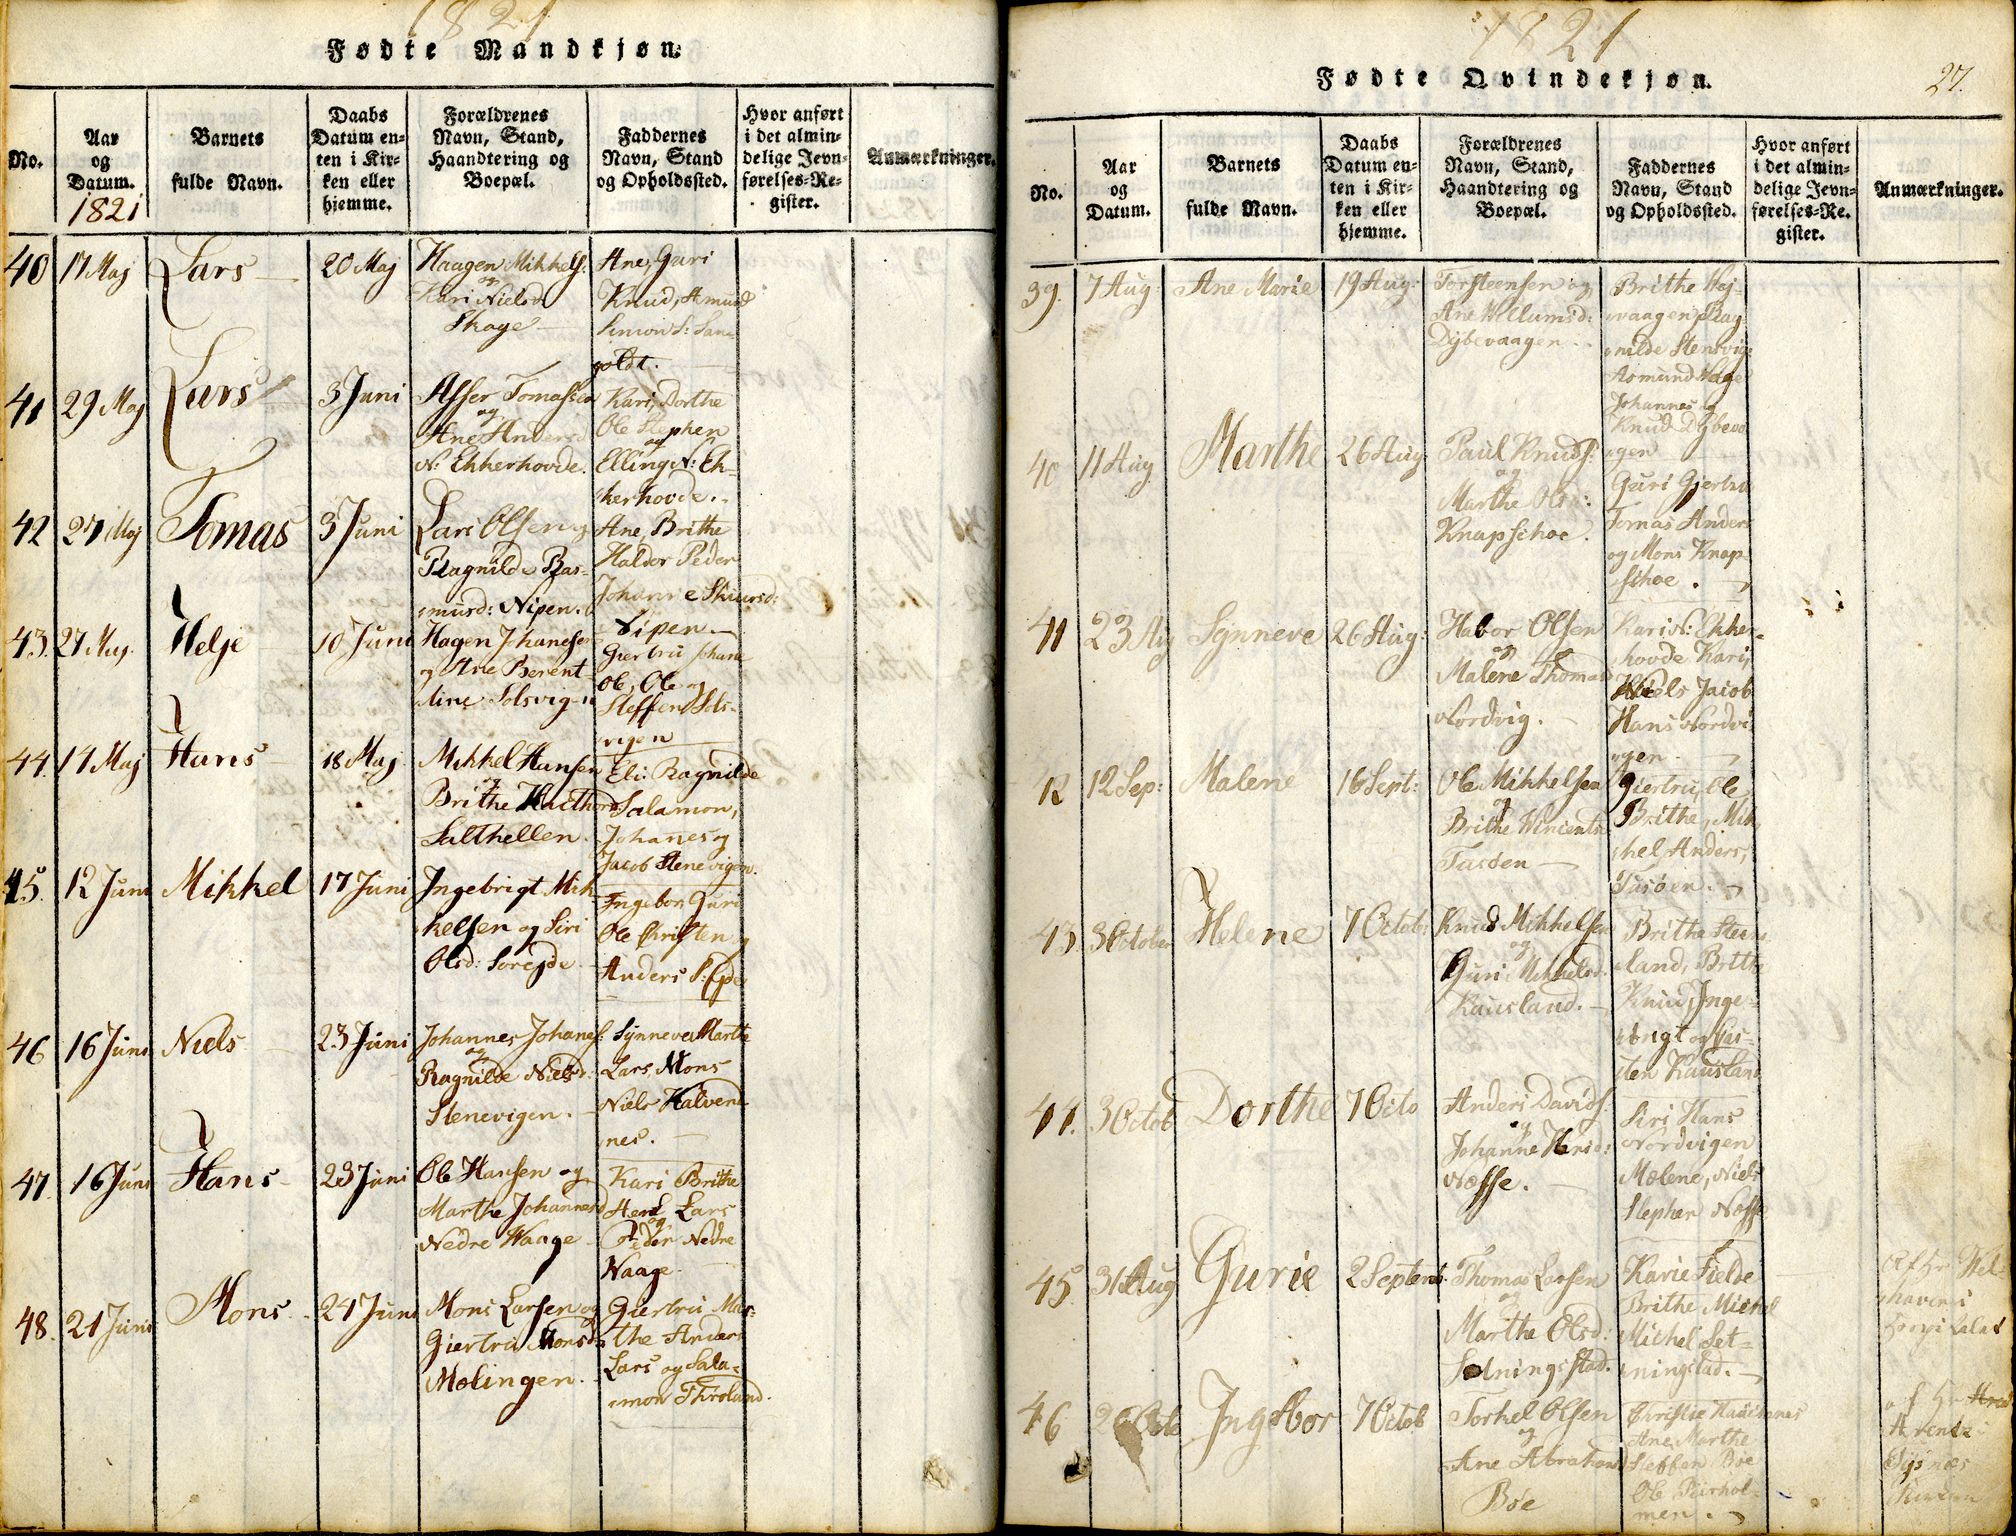 1821
Fødte Mandkjøn.
No.
Aar
og
Datum.
1821
Barnets
fulde Navn.
Daabs
Datum en-
ten i Kir-
ken eller
hjemme.
Forældrenes
Navn, Stand,
Haandtering og
Boepæl.
Faddernes
Navn, Stand
og Opholdssted.
Hvor anført
i det almin-
delige Jevn-
førelses-Re-
gister.
Anmærkninger.
40 17 Maj Lars 20 Maj
Haagen Mikkels:
og
Kari Nielsd
Skage
Ane, Guri
Knud, Amund
Simon S: San
goldt.
41 29 Maj Lars 3 Juni
Asser Tomassen
og
Ane Andersd
N: Ekkerhovde.
Kari, Dorthe
Ole Stephen
og
Elling N: Ek-
kerhovde.
42 27 Maj Tomas 3 Juni
Lars Olsen og
Ragnilde Ras-
musd: Nipen.
Ane, Brithe
Haldor Peder
Johanne
Nipen
43. 27 Maj. Helje 10 Juni
Hagen Johanesen
og Ane Berent-
dine Solsvigen
Giertru Johane
Ole, Ole og
Steffen Sols-
vigen
44. 14 Maj Hans 18 Maj
Mikkel Hansen
og
Brithe
Salthellen.
Eli: Ragnilde
Salamon,
Johanes og
Jacob Stenevigen.
45. 12 Juni Mikkel 17 Juni
Ingebrigt Mik-
kelsen og Siri
Olsd: Sørejde
Ingebor, Guri
Ole Christen og
Anders S:
46 16 Juni Niels 23 Juni
Johannes Johanes:
og
Ragnilde Nielsd:
Stenevigen.
Synneve, Marthe
Lars Mons
Niels Kalvene
nes.
47. 16 Juni Hans 23 Juni
Ole Hansen og
Marthe Johannesd
Nedre Waage
Kari Brithe
Lars
og
Peder Nedre
Waage
48. 21 Juni Mons 24 Juni
Mons Larsen og
Giertru Monsd
Mølingen.
Giertru Mar-
the Anders
Lars og Sala-
mon Throland.
1821
27.
Fødte Qvindekjøn.
No.
Aar
og
Datum.
Barnets
fulde Navn.
Daabs
Datum en-
ten i Kir-
ken eller
hjemme.
Forældrenes
Navn, Stand,
Haandtering og
Boepæl.
Faddernes
Navn, Stand
og Opholdssted.
Hvor anført
i det almin-
delige Jevn-
førelses-Re-
gister.
Anmærkninger.
39. 7 Aug: Ane Marie 19 Aug:
Torsteensen og
Ane Willumsd:
Dybevaagen
Brithe Høj-
vaagen, Rag-
nilde Stensvig
Asmund
Johannes og
Knud Dybeva
gen
40 11 Aug Marthe 26 Aug
Paul Knuds:
og
Marthe Olsd:
Knapschoe.
Guri Giertru
Tomas Anders
og Mons Knap-
schoe.
41 23 Aug Synneve 26 Aug:
Habor Olsen
og
Malene Thomasd
Nordvig.
Kari N: Ekker-
hovde Kari,
Niels Jacob
Hans Nordvi-
gen
42 12 Sep: Malene 16 Sept:
Ole Mikkelsen
og
Brithe
Tøsøen
Giertru, Ole
Brithe, Mik-
kel Anders,
Tøsøen.
43. 3 October Helene 7 Octob:
Knud Mikkelsen
og
Guri Mikkelsd.
Kausland.
Britha Steens-
land, Brithe
Knud, Inge-
brigt og
Kausland
44. 3 Octob Dorthe 7 Octo
Anders Davids:
og
Johanne
Næsse.
Siri Hans
Nordvigen
Malene, Niels
Stephen Næsse
45. 31 Aug Gurie 2 Septemb.
Thomas Larsen
og
Marthe Olsd:
Sætningstad.
Karie Fielde
Brithe Michel
Michel Set-
ningstad.
46 Octo Ingebor 7 Octob
Torkel Olsen
og
Ane Abrahamsd
Bøe
Christie
Ane, Marthe
Steffen Bøe
Ole
men.